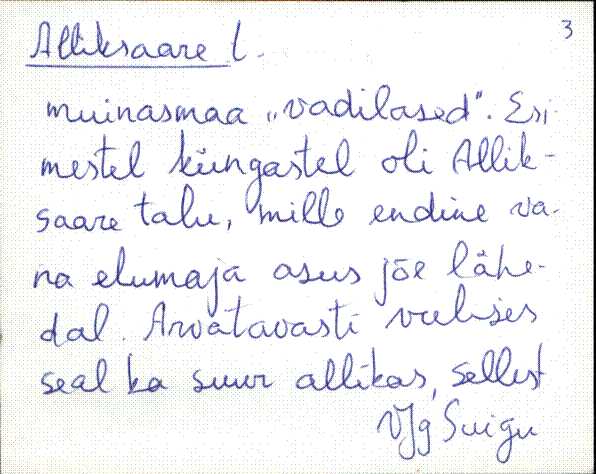 3
Alliksaare t.
muinasmaa „vadilased". Esi-
mestel küngastel oli Allik-
saare talu, mille endine va-
na elumaja asus jõe lähe-
dal. Arvatavasti vulises
seal ka suur allikas, sellest
VJg Suigu